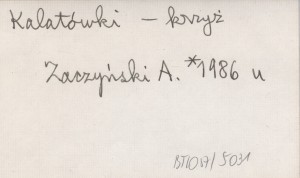 Kalatówki – krzyż
Zaczyński A. *1986 u
BT1047/5031